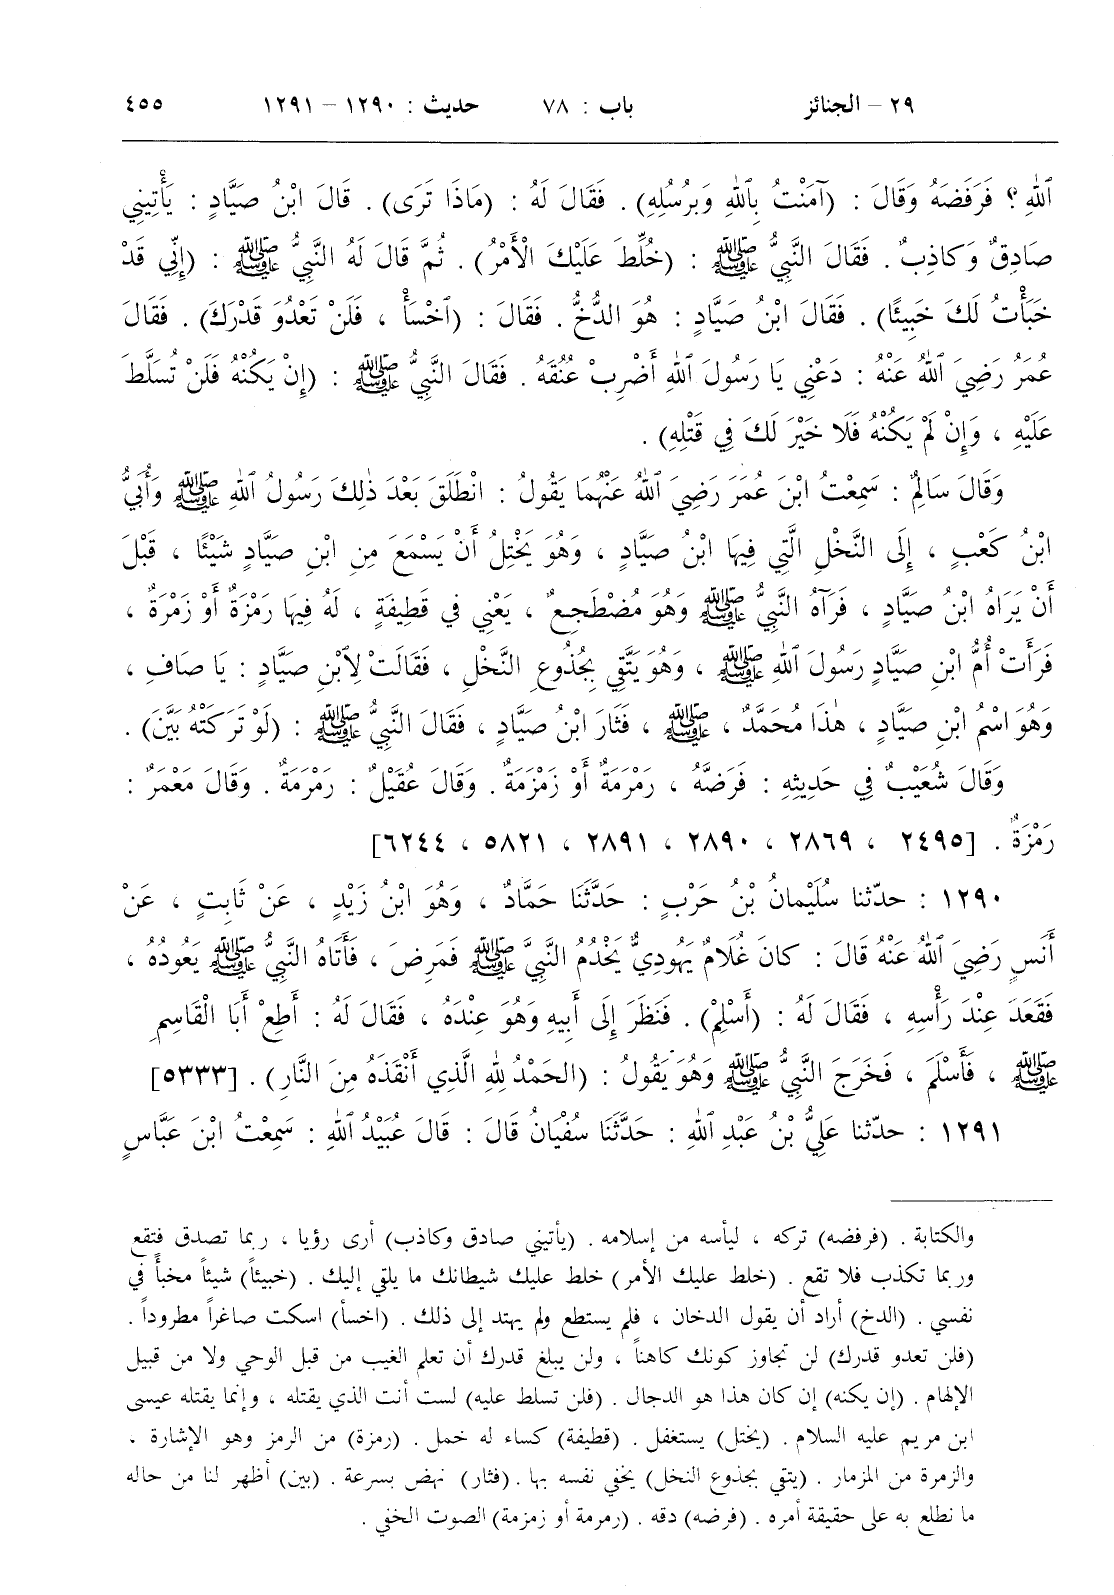 ٢٩ – الجنائز باب : ٧٨ حديث : ١٢٩٠ – ١٢٩١ ٤٥٥
ٱللهِ ؟ فَرَفَضَهُ وَقَالَ : (آمَنْتُ بِٱللهِ وَبِرُسُلِهِ) . فَقَالَ لَهُ : (مَاذَا تَرَى) . قَالَ ابْنُ صَيَّادٍ : يَأْتِينِي
صَادِقٌ وَكَاذِبٌ . فَقَالَ النَّبِيُّ ﷺ : (خُلِّطَ عَلَيْكَ الْأَمْرُ) . ثُمَّ قَالَ لَهُ النَّبِيُّ ﷺ : (إِنِّي قَدْ
خَبَأْتُ لَكَ خَبِيئًا) . فَقَالَ ابْنُ صَيَّادٍ : هُوَ الدُّخُّ . فَقَالَ : (ٱخْسَأْ ، فَلَنْ تَعْدُوَ قَدْرَكَ) . فَقَالَ
عُمَرُ رَضِيَ ٱللهُ عَنْهُ : دَعْنِي يَا رَسُولَ ٱللهِ أَضْرِبْ عُنُقَهُ . فَقَالَ النَّبِيُّ ﷺ : (إِنْ يَكُنْهُ فَلَنْ تُسَلَّطَ
عَلَيْهِ ، وَإِنْ لَمْ يَكُنْهُ فَلَا خَيْرَ لَكَ فِي قَتْلِهِ) .
وَقَالَ سَالِمٌ : سَمِعْتُ ابْنَ عُمَرَ رَضِيَ ٱللهُ عَنْهُمَا يَقُولُ : انْطَلَقَ بَعْدَ ذٰلِكَ رَسُولُ ٱللهِ ﷺ وَأُبَيُّ
ابْنُ كَعْبٍ ، إِلَى النَّخْلِ الَّتِي فِيهَا ابْنُ صَيَّادٍ ، وَهُوَ يَخْتِلُ أَنْ يَسْمَعَ مِنِ ابْنِ صَيَّادٍ شَيْئًا ، قَبْلَ
أَنْ يَرَاهُ ابْنُ صَيَّادٍ ، فَرَآهُ النَّبِيُّ ﷺ وَهُوَ مُضْطَجِعٌ ، يَعْنِي فِي قَطِيفَةٍ ، لَهُ فِيهَا رَمْزَةٌ أَوْ زَمْرَةٌ ،
فَرَأَتْ أُمُّ ابْنِ صَيَّادٍ رَسُولَ ٱللهِ ﷺ ، وَهُوَ يَتَّقِي بِجُذُوعِ النَّخْلِ ، فَقَالَتْ لِٱبْنِ صَيَّادٍ : يَا صَافِ ،
وَهُوَ اسْمُ ابْنِ صَيَّادٍ ، هٰذَا مُحَمَّدٌ ، ﷺ ، فَثَارَ ابْنُ صَيَّادٍ ، فَقَالَ النَّبِيُّ ﷺ : (لَوْ تَرَكَتْهُ بَيَّنَ) .
وَقَالَ شُعَيْبٌ فِي حَدِيثِهِ : فَرَضَّهُ ، رَمْرَمَةٌ أَوْ زَمْزَمَةٌ . وَقَالَ عُقَيْلٌ : رَمْرَمَةٌ . وَقَالَ مَعْمَرٌ :
رَمْزَةٌ . [٢٤٩٥ ، ٢٨٦٩ ، ٢٨٩٠ ، ٢٨٩١ ، ٥٨٢١ ، ٦٢٤٤]
١٢٩٠ : حدّثنا سُلَيْمانُ بْنُ حَرْبٍ : حَدَّثَنَا حَمَّادٌ ، وَهُوَ ابْنُ زَيْدٍ ، عَنْ ثَابِتٍ ، عَنْ
أَنَسٍ رَضِيَ ٱللهُ عَنْهُ قَالَ : كانَ غُلَامٌ يَهُودِيٌّ يَخْدُمُ النَّبِيَّ ﷺ فَمَرِضَ ، فَأَتَاهُ النَّبِيُّ ﷺ يَعُودُهُ ،
فَقَعَدَ عِنْدَ رَأْسِهِ ، فَقَالَ لَهُ : (أَسْلِمْ) . فَنَظَرَ إِلَى أَبِيهِ وَهُوَ عِنْدَهُ ، فَقَالَ لَهُ : أَطِعْ أَبَا الْقَاسِمِ
ﷺ ، فَأَسْلَمَ ، فَخَرَجَ النَّبِيُّ ﷺ وَهُوَ يَقُولُ : (الحَمْدُ لِلهِ الَّذِي أَنْقَذَهُ مِنَ النَّارِ) . [٥٣٣٣]
١٢٩١ : حدّثنا عَلِيُّ بْنُ عَبْدِ ٱللهِ : حَدَّثَنَا سُفْيَانُ قَالَ : قَالَ عُبَيْدُ ٱللهِ : سَمِعْتُ ابْنَ عَبَّاسٍ
والكتابة . (فرفضه) تركه ، ليأسه من إسلامه . (يأتيني صادق وكاذب) أرى رؤيا ، ربما تصدق فتقع
وربما تكذب فلا تقع . (خلط عليك الأمر) خلط عليك شيطانك ما يلقي إليك . (خبيئاً) شيئاً مخبأً في
نفسي . (الدخ) أراد أن يقول الدخان ، فلم يستطع ولم يهتد إلى ذلك . (اخسأ) اسكت صاغراً مطروداً .
(فلن تعدو قدرك) لن تجاوز كونك كاهناً ، ولن يبلغ قدرك أن تعلم الغيب من قبل الوحي ولا من قبيل
الإلهام . (إن يكنه) إن كان هذا هو الدجال . (فلن تسلط عليه) لست أنت الذي يقتله ، وإنما يقتله عيسى
ابن مريم عليه السلام . (يختل) يستغفل . (قطيفة) كساء له خمل . (رمزة) من الرمز وهو الإشارة .
والزمرة من المزمار . (يتقي بجذوع النخل) يخفي نفسه بها . (فثار) نهض بسرعة . (بين) أظهر لنا من حاله
ما نطلع به على حقيقة أمره . (فرضه) دقه . (رمرمة أو زمزمة) الصوت الخفي .